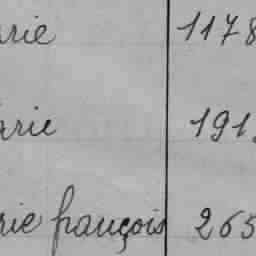 arie 1178
arie 191
rie françois 265